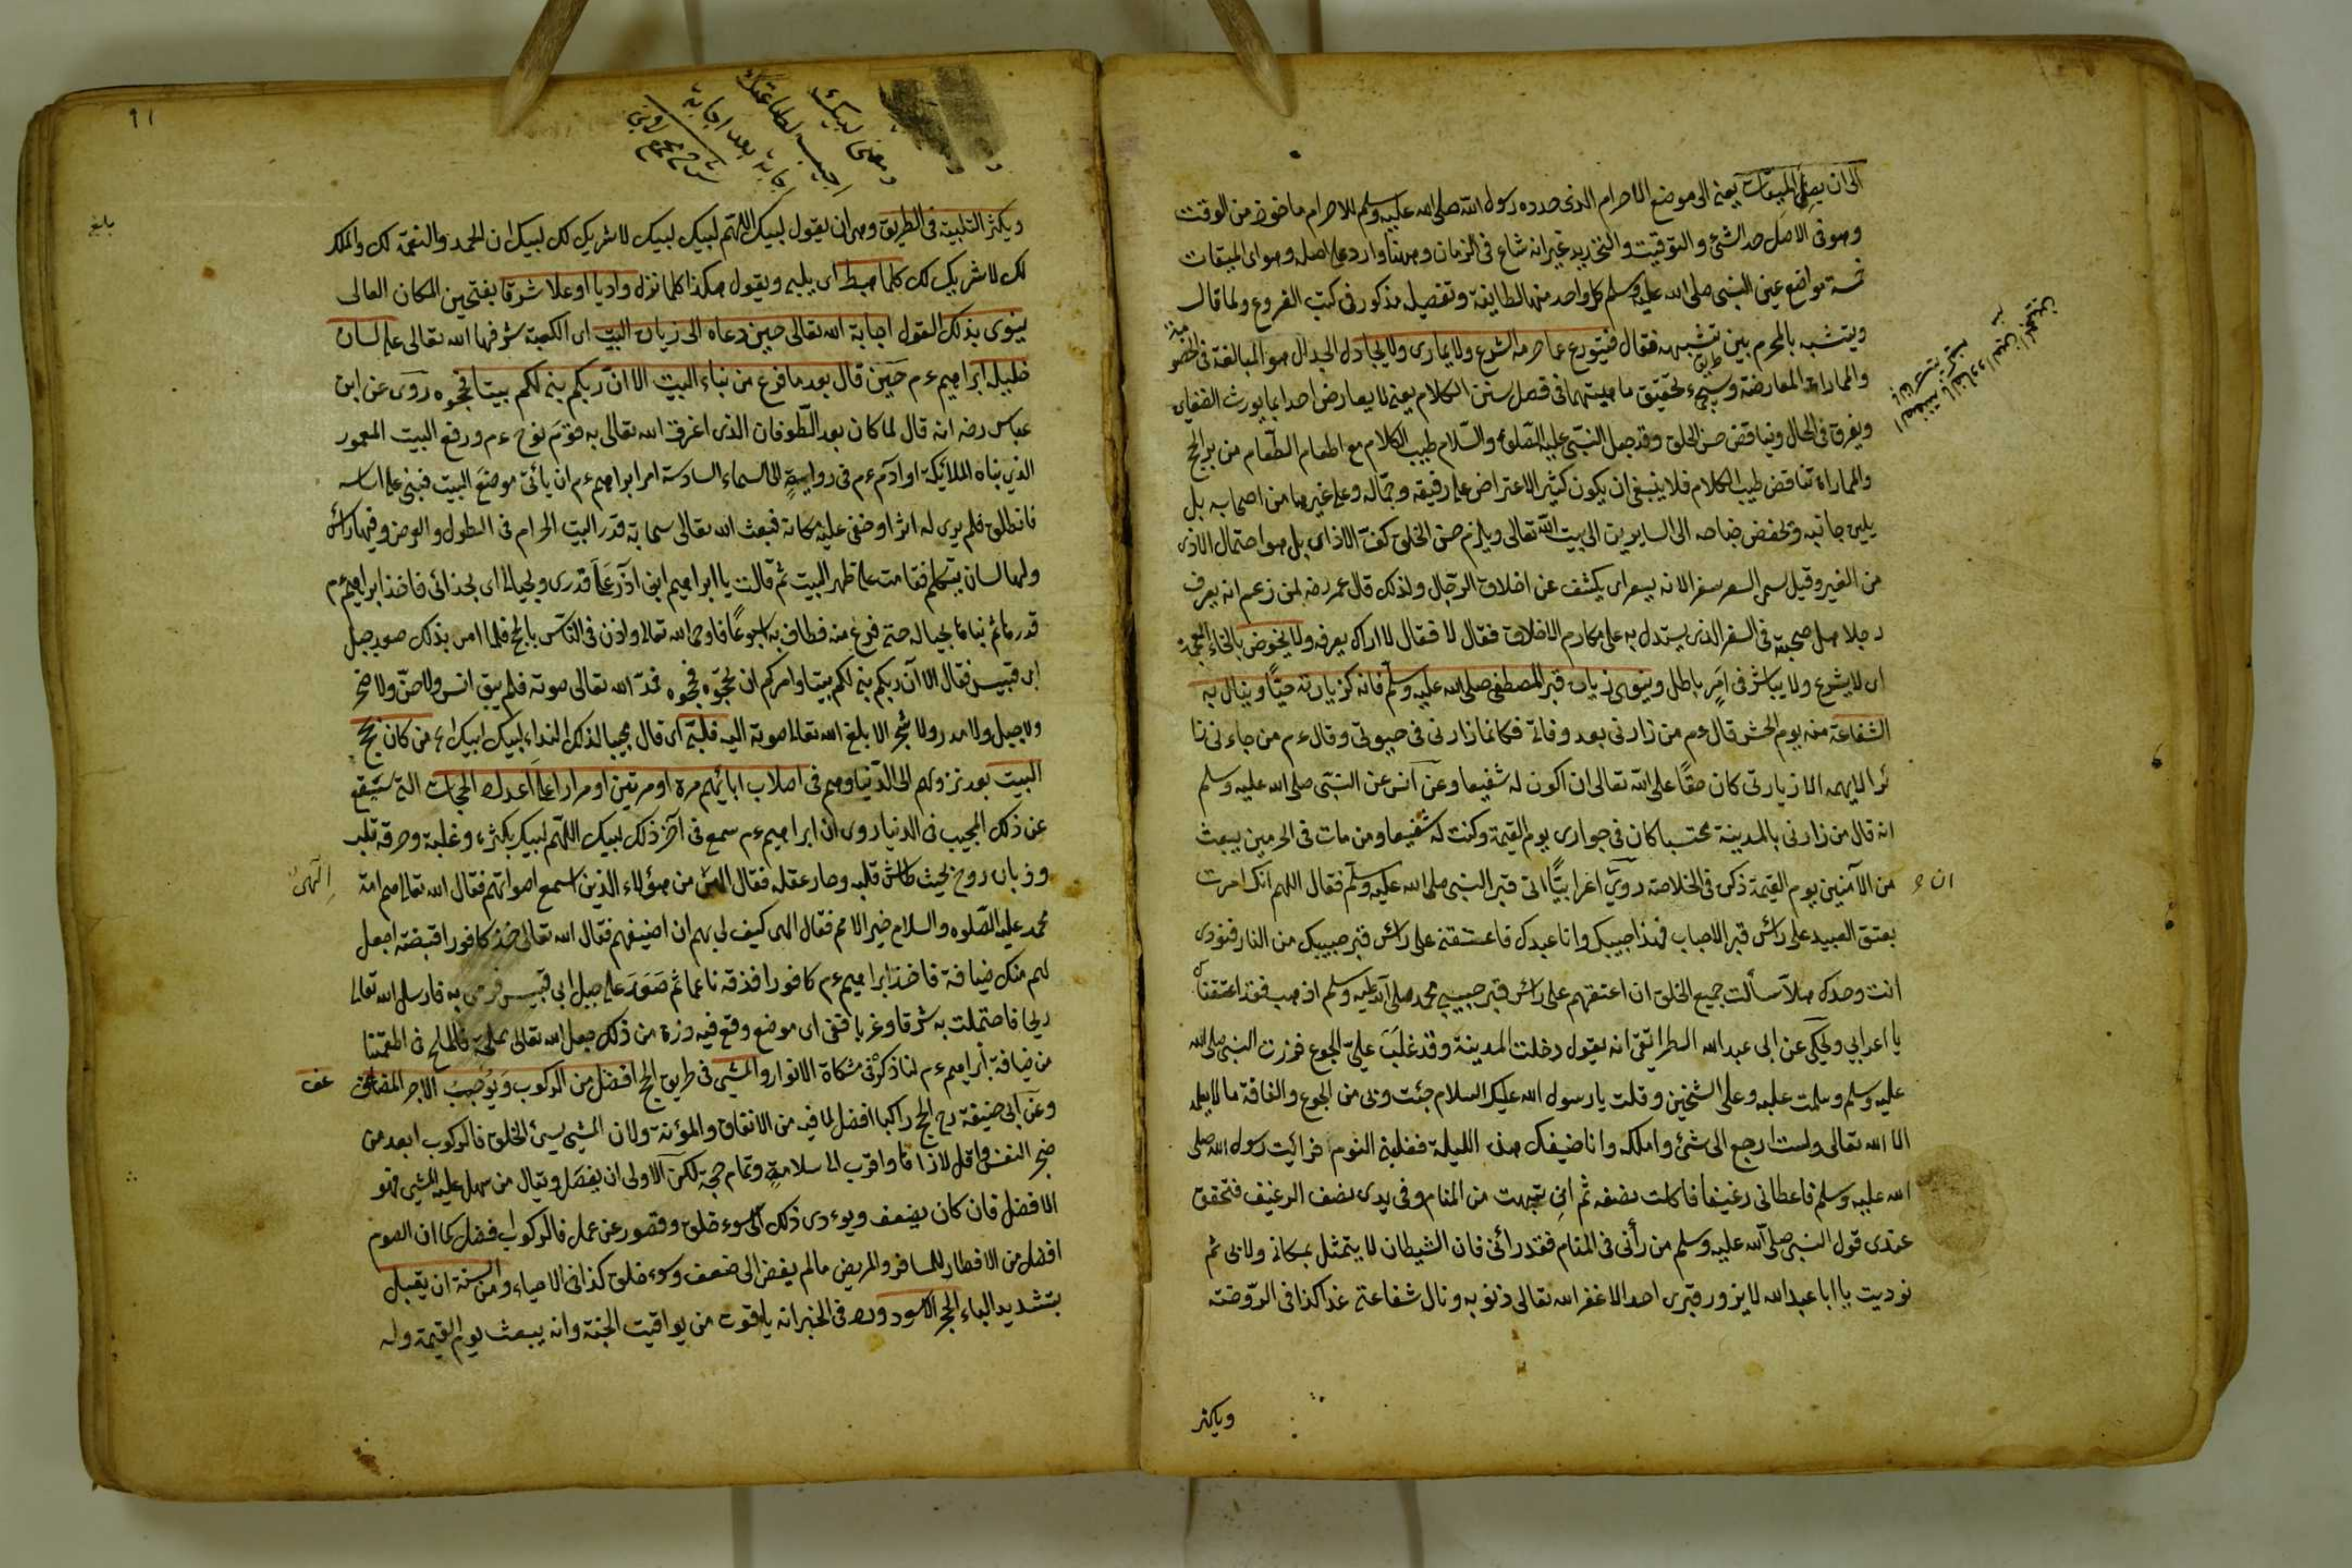 الى ان يصل الميقات يعني الى موضع الاحرام الذى حدده رسول الله صلى الله عليه وسلم للاحرام ماخوذ من الوقت
وهو فى الاصل حد الشئ والتوقيت والتحديد غير انه شاع فى الزمان وههنا وارد على اصله وهو اى الميقات
خمسة مواضع عين النبى صلى الله عليه وسلم كل واحد منها لطايفة وتفصيله مذكور فى كتب الفروع ولما قال
ويتشبه بالمحرم بين تشبهه فقال فيتورع عما حرمه الشرع ولا يمارى ولا يجادل الجدال هو المبالغة فى الخصو
والمماراة المعارضة وسيجئ تحقيق ماهيتهما فى فصل سنن الكلام يعنى لا يعارض احدا بما يورث الضغاين
ويفرق فى الحال ويناقض حسن الخلق وقد جعل النبى عليه الصلوة والسلام طيب الكلام مع اطعام الطعام من بر الحج
والمماراة تناقض طيب الكلام فلا ينبغى ان يكون كثير الاعتراض على رفيقه وجماله وعلى غيرهما من اصحابه بل
يلين جانبه ويخفض جناحه الى السايرين الى بيت الله تعالى ويلزم حسن الخلق كف الاذى بل هو احتمال الاذى
من الغير وقيل سمى السفر سفرا لانه يسفر اى يكشف عن اخلاق الرجال ولذلك قال عمر رضه لمن زعم انه يعرف
رجلا هل صحبته فى السفر الذى يستدل به على مكارم الاخلاق فقال لا فقال لا اراك يعرفه ولا يخوض بالخاء المعجمة
اى لا يشرع ولا يباشر فى امر باطل وينوى زيارة قبر المصطفى صلى الله عليه وسلم فانه كزيارته حيا وينال به
الشفاعة منه يوم الحشر قال ءم من زارنى بعد وفاتى فكانما زارنى فى حيوتى وقال ءم من جاءنى زا
ئرا لا يهمه الا زيارتى كان حقا على الله تعالى ان اكون له شفيعا وعن انس عن النبى صلى الله عليه وسلم
انه قال من زارنى بالمدينة محتسبا كان فى جوارى يوم القيمة وكنت له شفيعا ومن مات فى الحرمين يبعث
من الآمنين يوم القيمة ذكره فى الخلاصة روى اعرابيا اتى قبر النبى صلى الله عليه وسلم فقال اللهم انك امرت
ان
بعتق العبيد على رأس قبر الاحباب فهذا حبيبك وانا عبدك فاعتقنى على رأس قبر حبيبك من النار فنودى
انت وحدك هلا سألت جميع الخلق ان اعتقهم على رأس قبر حبيبى محمد صلى الله عليه وسلم اذهب فقد اعتقناك
يا اعرابي ويحكى عن ابى عبد الله انه يقول دخلت المدينة وقد غلب على الجوع فزرت النبى صلى الله
عليه وسلم وسلمت عليه وعلى الشيخين وقلت يا رسول الله عليك السلام جئت وبى من الجوع والفاقة ما لا يعلمه
الا الله تعالى ولست ارجع الى شئ واملكه وانا ضيفك هذه الليلة فغلبنى النوم فرأيت رسول الله صلى
الله عليه وسلم فاعطانى رغيفا فاكلت نصفه ثم انتبهت من المنام وفى يدى نصف الرغيف فتحقق
عندى قول النبى صلى الله عليه وسلم من رأنى فى المنام فقد رأنى فان الشيطان لا يتمثل بمكانى ولا بى ثم
نوديت يا ابا عبد الله لا يزور قبرى احد الا غفر الله تعالى ذنوبه ونال شفاعتى غدا كذا فى الروضة
ويكثر
91
ومعنى لبيك
اجيب لطاعتك
اجابة بعد اجابة
بلغ
ويكثر التلبية فى الطريق وهى ان يقول لبيك اللهم لبيك لبيك لا شريك لك لبيك ان الحمد والنعمة لك والملك
لك لا شريك لك كلما هبط اى يلبى ويقول هكذا كلما نزل واديا او علا شرفا بفتحين المكان العالى
ينوى بذلك القول اجابة الله تعالى حين دعاه الى زيارة البيت اى الكعبة شرفها الله تعالى على لسان
خليله ابراهيم ءم حين قال بعد ما فرغ من بناء البيت الا ان ربكم بنى لكم بيتا فحجوه روى عن ابن
عباس رضه انه قال لما كان بعد الطوفان الذى اغرق الله تعالى به قوم نوح ءم ورفع البيت المعمور
الذى بناه الملائكة او ادم ءم فى رواية الى السماء السادسة امر ابراهيم ءم ان يأتى موضع البيت فيبنى على اساسه
فانطلق فلم يرى له اثرا وخفى عليه مكانه فبعث الله تعالى سحابة قدر البيت الحرام فى الطول والعرض وفيها رأس
ولها لسان يتكلم فقامت على ظهر البيت ثم قالت يا ابراهيم ابن على قدرى وبحيالى اى بحذائى فاخذ ابراهيم ءم
قدرها ثم بناها بحيالها حتى فرغ منه فطاف به اسبوعا فاوحى الله تعالى واذن فى الناس بالحج فلما امر بذلك صعد جبل
ابى قبيس فقال الا ان ربكم بنى لكم بيتا وامركم ان تحجوه فحجوه فمد الله تعالى صوته فلم يبق انس ولا جن ولا صخر
ولا جبل ولا مدر ولا شجر الا بلغ الله تعالى صوته اليه فلبى اى قال مجيبا لذلك النداء لبيك لبيك من كان يحج
البيت بعد نزولهم الى الدنيا وهم فى اصلاب ابائهم مرة او مرتين او مرارا على اعداد الحجات التى ستقع
عن ذلك المجيب فى الدنيا روى ان ابراهيم ءم سمع فى آخر ذلك لبيك اللهم لبيك بكثرة وغلبة وحرقة قلب
وذبان روح بحيث طاش قلبه وحار عقله فقال الهى من هؤلاء الذين اسمع اصواتهم فقال الله تعالى هم امة
الهى
محمد عليه الصلوة والسلام خير الامم فقال الهى كيف لى بهم ان اضيفهم فقال الله تعالى خذ كافورا قبضة اجعل
لهم منك ضيافة فاخذ ابراهيم ءم كافورا فدقه ناعما ثم صعد على جبل ابى قبيس فرمى به فارسل الله تعالى
ريحا فاحتملت به شرقا وغربا ففى اى موضع وقع فيه ذرة من ذلك جعل الله تعالى مملحة فالملح فى
من ضيافة ابراهيم ءم لنا ذكره فى مشكاة الانوار والمشى فى طريق الحج افضل من الركوب ويوجب الاجر المضاعف
عف
وعن ابى حنيفة رح الحج راكبا افضل لما فيه من الانفاق والمؤنة ولان المشى يسئ الخلق فالركوب ابعد من
ضجر النفس واقل لاذاها واقرب الى سلامة وتمام حجه لكن الاولى ان يفصل ويقال من سهل عليه المشى فهو
الافضل فان كان يضعف ويودى ذلك الى سوء خلق وقصور عن عمل فالركوب افضل كما ان الصوم
افضل من الافطار للمسافر والمريض ما لم يفض الى ضعف وسوء خلق كذا فى الاحياء ومن السنة ان يقبل
بتشديد الباء الحجر الاسود ورد فى الخبر انه ياقوت من يواقيت الجنة وانه يبعث يوم القيمة وله